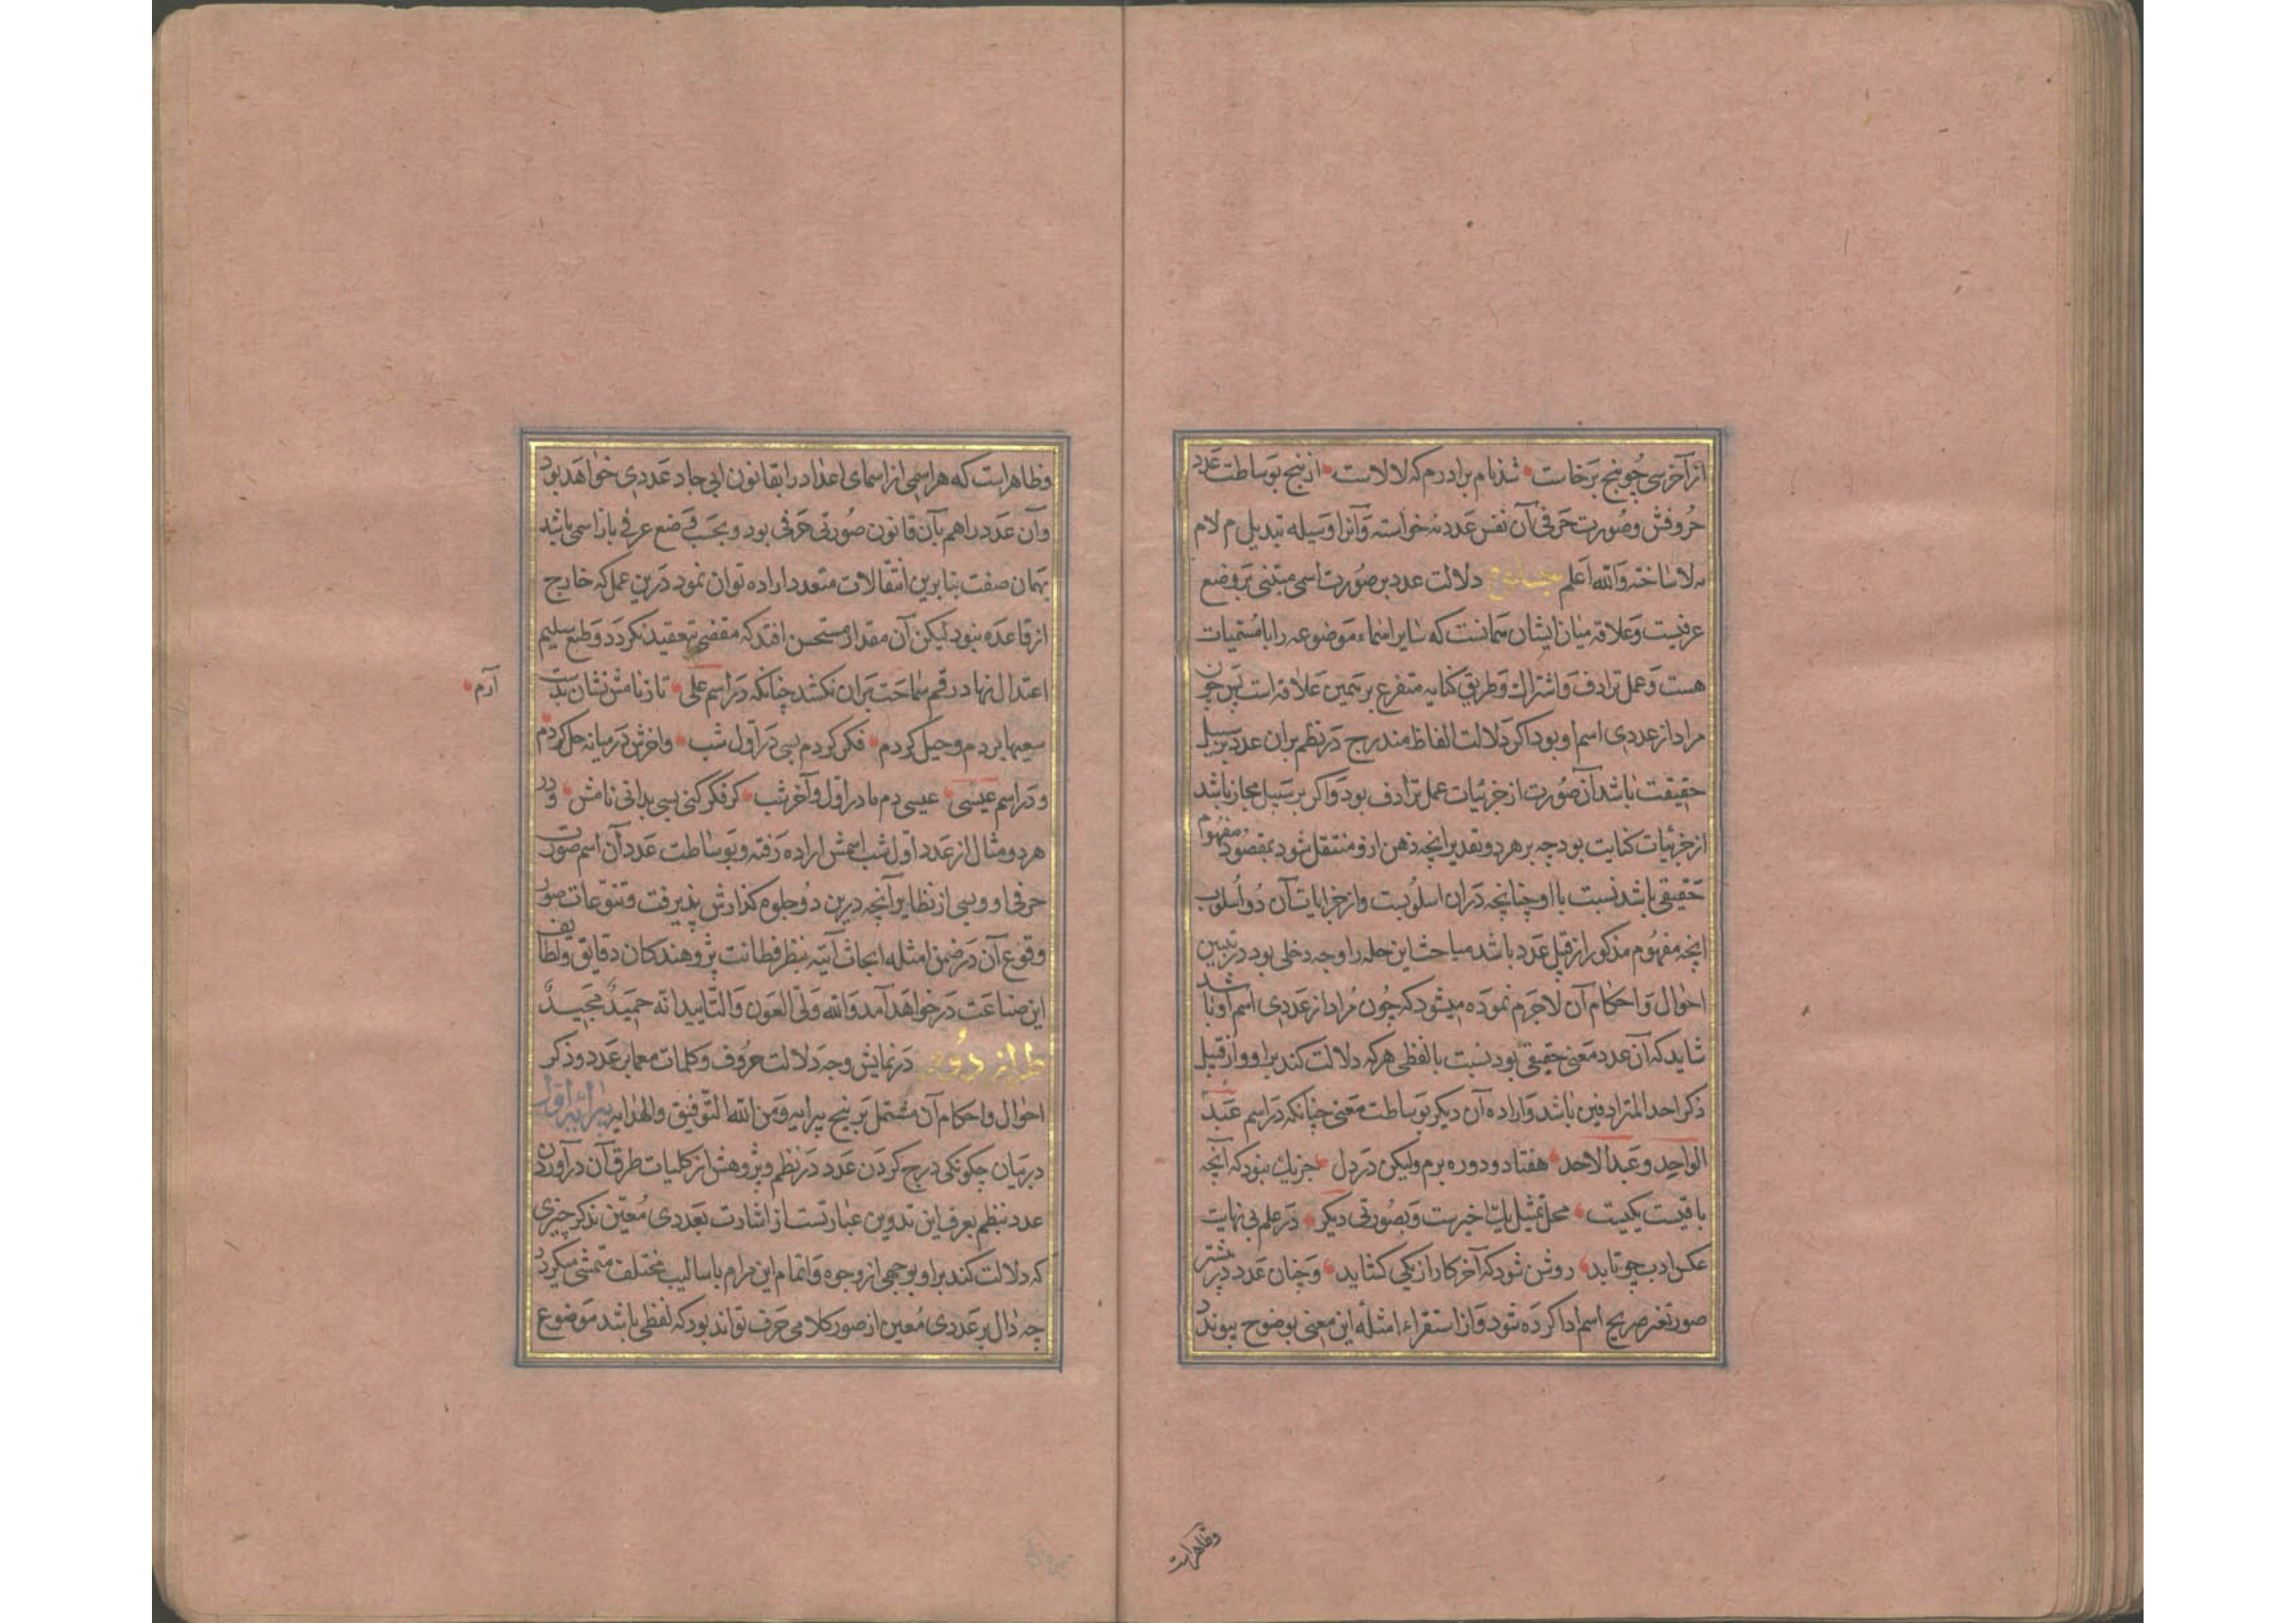 از آخر سی چو پنج برخاست شد نام برادرم که لالاست از پنج بوساطت عدد
حروفش و صورت حرفی آن نفس عدد نه خواسته و آنرا وسیله تبدیل م لام
به لا ساخته والله اعلم دلالت عدد بر صورت اسمی مبتنی بر وضع
عرفیست و علاقه میان ایشان همانست که سایر اسماء موضوعه را با مسمیات
هست و عمل ترادف و اشتراك و طریق کنایه متفرع بر همین علاقه است پس چون
مراد از عددی اسم او بود اکر دلالت الفاظ مندرج در نظم بران عدد بر سبیل
حقیقت باشد آن صورت از جزئیات عمل ترادف بود و اکر بر سبیل مجاز باشد
از جزئیات کنایت بود چه بر هر دو تقدیر انچه ذهن ازو منتقل شود بمقصود مفهوم
حقیقی باشد نسبت با او چنانچه دران اسلوبست و از جزایات آن دو اسلوب
انچه مفهوم مذکور از قبل عدد باشد مباحث این حله را وجه دخلی بود در تبیین
احوال و احکام آن لاجرم نموده میشود که چون مراد از عددی اسم او باشد
شاید که آن عدد معنی حقیقی بود نسبت با لفظی هرکه دلالت کند براو و از قبیل
ذکر احد المترادفین باشد و اراده آن دیکر بوساطت معنی چنانکه در اسم عبد
الواحد و عبد الاحد هفتاد و دو ره برم ولیکن در دل جز یك نبود که آنچه
باقیست یکیست محل تمثیل بیت اخیرست و بصورتی دیکر در علم بی نهایت
عکس ادب چو تابد روشن شود که آخر کار از یکی کشاید و چنان عدد در بیشتر
صور تغیر صریح اسم ادا کرده شود و از استقراء امثله این معنی بوضوح پیوندد
وظاهراست
وظاهر است که هر اسمی از اسمای اعداد را بقانون ابی جاد عددی خواهد بود
وآن عدد را هم بآن قانون صورتی حرفی بود و بحسب وضع عرفی بازا اسمی باشد
بهمان صفت بنابرین انتقالات متعدد اراده توان نمود درین عمل که خارج
از قاعده نبود لیکن آن مقدار مستحسن افتد که مقضی بتعقید نکردد و طبع سلیم
اعتدال نهاد رقم سماحت بران نکشد چنانکه در اسم علی تا ز نامش نشان بدست
آرم
سعیها بردم و حیل کردم فکر کردم بسی در اول شب و اخرش در میانه حل کردم
و در اسم عیسی عیسی دم ما در اول و آخر شب کر فکر کنی بسی بدانی نامش و در
هر دو مثال از عدد اول شب اسمش اراده رفته و بوساطت عدد آن اسم صورت
حرفی او و بسی از نظایر آنچه درین دو جلوه کذارش پذیرفت و تنوعات صور
وقوع آن در ضمن امثله ابحاث آتیه بنظر فطانت پژوهندکان دقایق و لطایف
این صناعت در خواهد آمد والله ولی العون والتایید انه حمید مجید
طراز دوم در نمایش وجه دلالت حروف و کلمات معما بر عدد و ذکر
احوال و احکام آن مشتمل بر پنج پیرایه و من الله التوفیق والهدایه پیرایه اول
در بیان چکونکی درج کردن عدد در نظم و پژوهش از کلیات طرق آن درآوردن
عدد بنظم بعرف این تدوین عبارتست از اشارت بعددی معین بذکر چیزی
که دلالت کند براو بوجهی از وجوه و اتمام این مرام باسالیب مختلف متمشی میکردد
چه دال بر عددی معین از صور کلامی حرف تواند بود که لفظی باشد موضوع